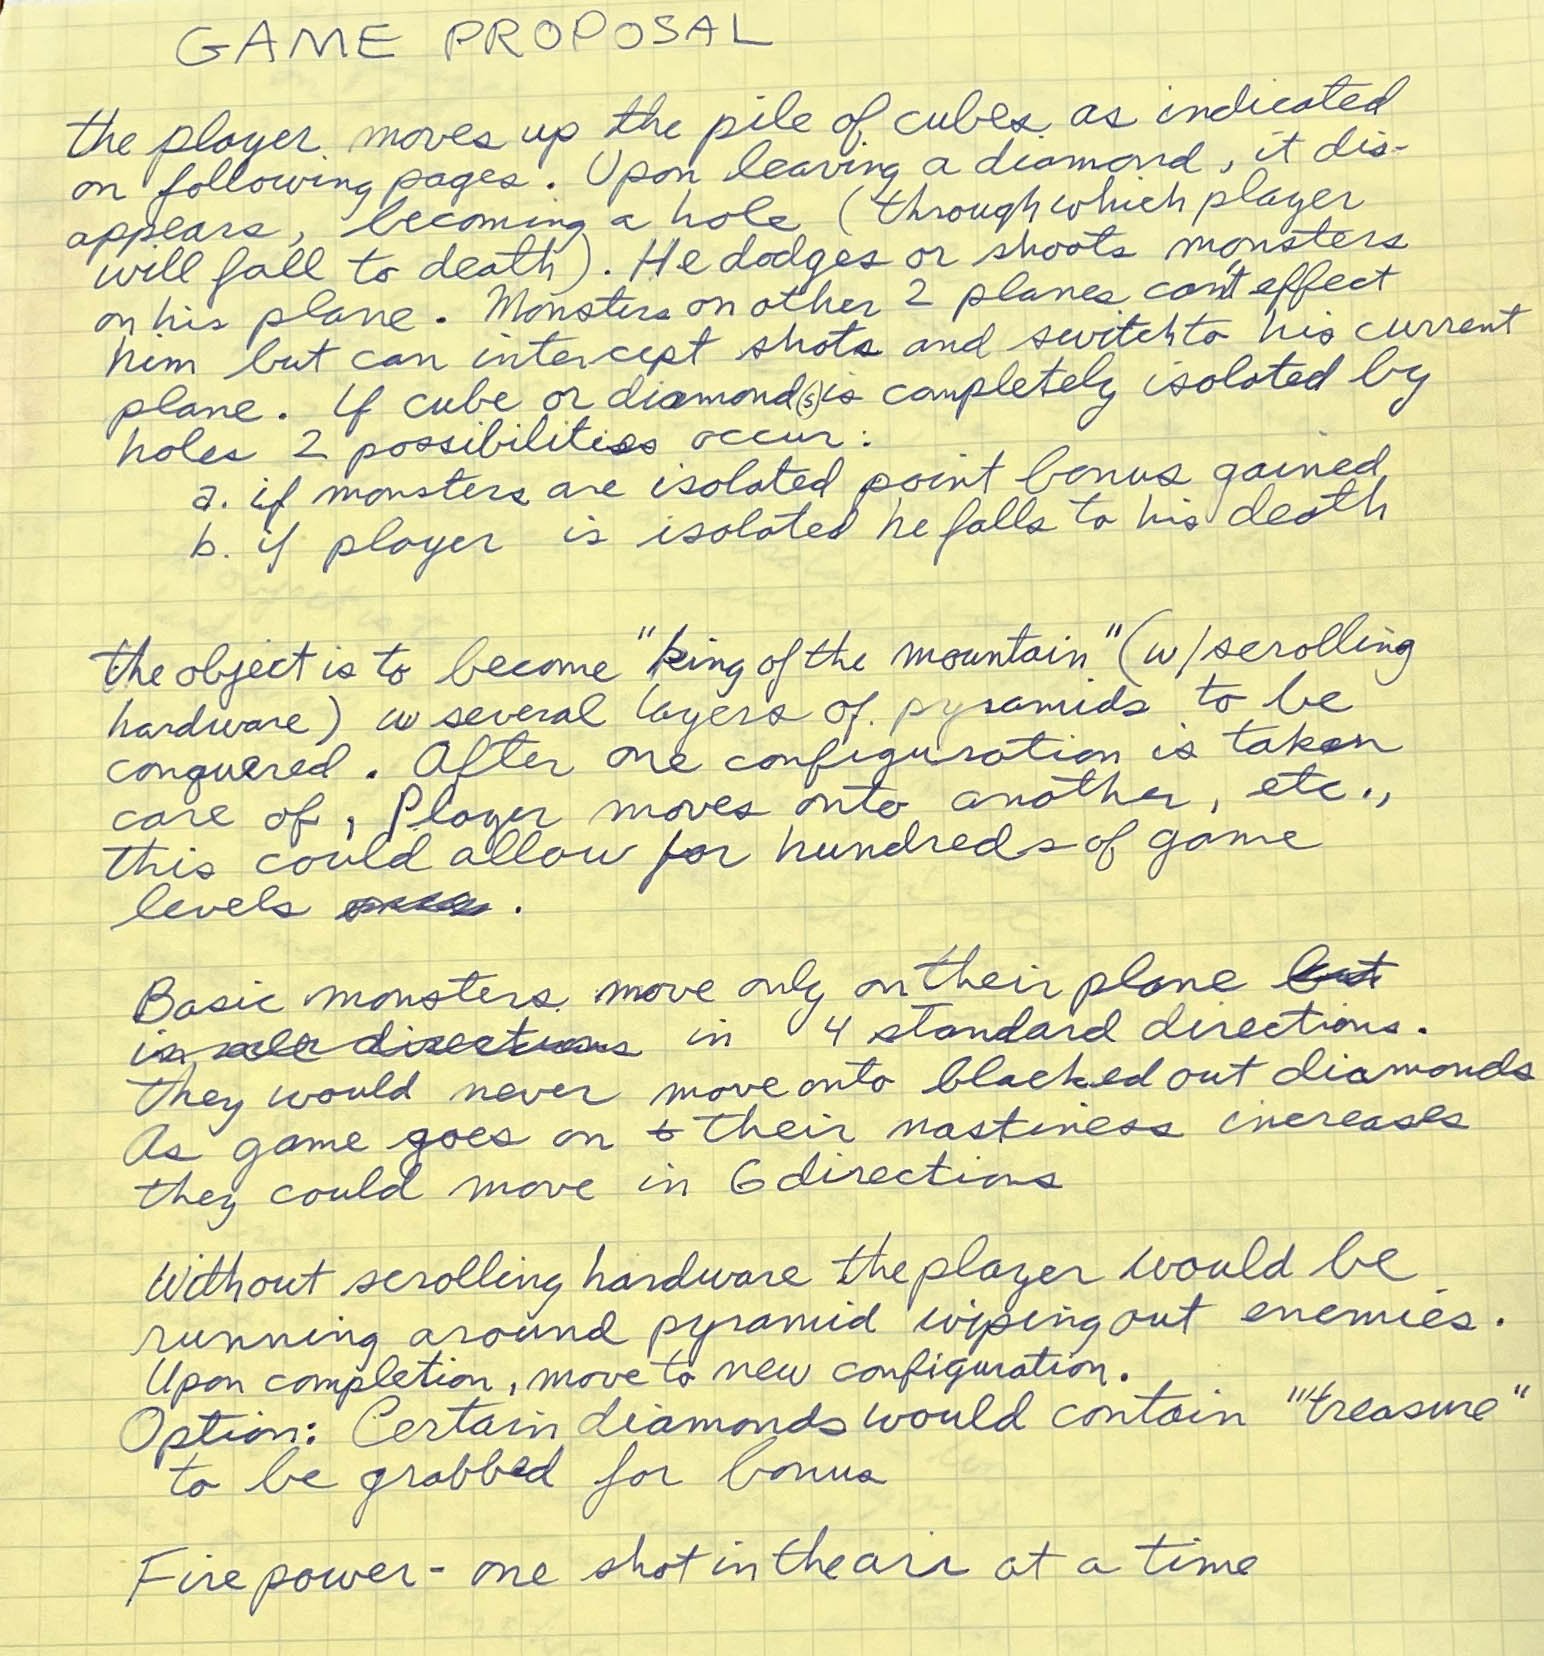 GAME PROPOSAL
the player moves up the pile of cubes as indicated
on following pages. Upon leaving a diamond, it dis-
appears, becoming a hole (through which player
will fall to death). He dodges or shoots monsters
on his plane. Monsters on other 2 planes can't effect
him but can intercept shots and switch to his current
plane. If cube or diamond(s) is completely isolated by
holes 2 possibilities occur:
a. if monsters are isolated point bonus gained
b. if player is isolated he falls to his death
the object is to become "king of the mountain" (w/scrolling
hardware) w several layers of pyramids to be
conquered. After one configuration is taken
care of, Player moves onto another, etc.,
this could allow for hundreds of game
levels .
Basic monsters move only on their plane but
in all directions in 4 standard directions.
they would never move onto blacked out diamonds
As game goes on t their nastiness increases
they could move in 6 directions
Without scrolling hardware the player would be
running around pyramid wiping out enemies.
Upon completion, move to new configuration.
Option: Certain diamonds would contain "treasure"
to be grabbed for bonus
Fire power - one shot in the air at a time